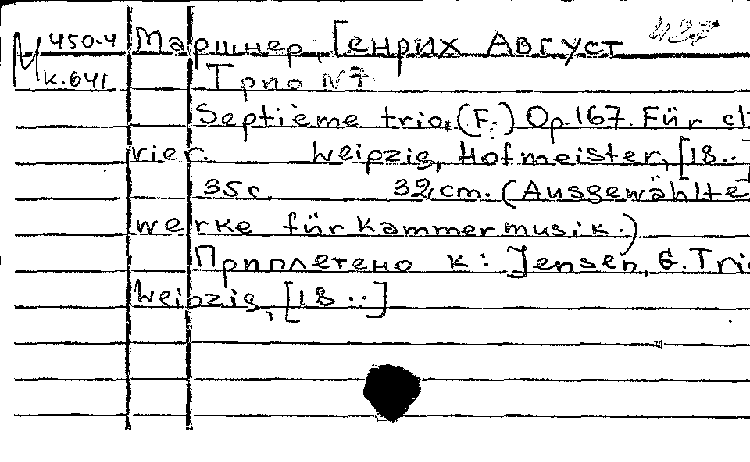 М 450-4 Маршнер, Генрих Август 437
к.641 Трио №7
Septième trio, (F.) Op.167. Für cl
vier. Leipzig, Hofmeister, [18..]
35 с. 32 cm. (Ausgewählte
werke für Kammermusik.)
Приплетено к: Jensen, G. Trio
Leipzig, [18..]